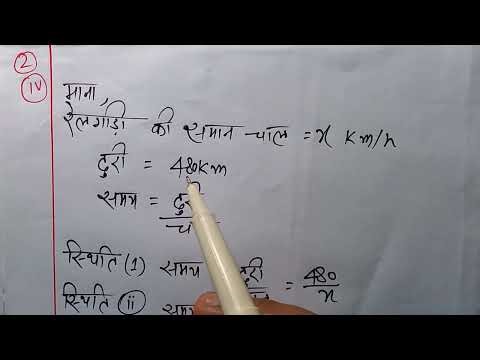 2
iv
माना,
रेलगाड़ी की समान चाल = x km/h
दुरी = 480km
समय = दुरी
स्थिति (1) समय दुरी = 480/x
स्थिति (ii) समय